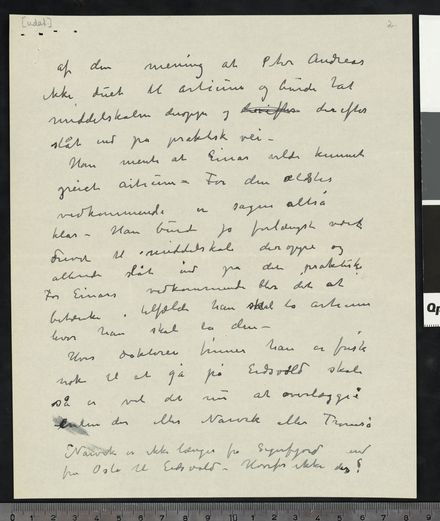 [udat]
2
af den mening at Thor Andreas
ikke duet til artium og burde tat
middelskolen deroppe og derefter
slåt ind på praktisk vei -
Han mente at Einar vilde kunnet
greiet artium - For den ældstes
vedkommende er sagen altså
klar - Han burde jo forlængst været
til middelskole deroppe og
allerede slåt ind på det praktiske
For Einars vedkommende blev det at
betænke i tilfælde han skal ta artium
hvor han skal ta den -
Hvis doktoren finner han er frisk
nok til at gå på Eidsvold skole
så er vel det nu at overlægge
enten der eller Narvik eller Tromsø
Narvik er ikke længer fra Eigerfjord end
fra Oslo til Eidsvold - Hvorfor ikke der?